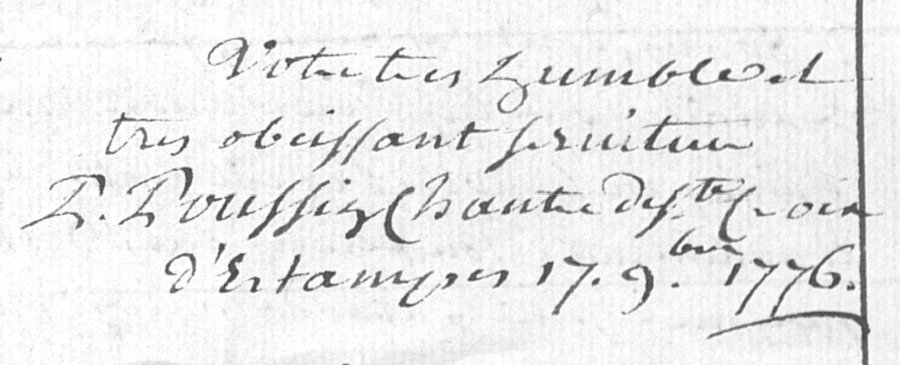 Votre tres humble et
tres obeissant seruiteur
P. Poussin Chantre de Ste Croix
d'Estampes 17. 9.bre 1776.